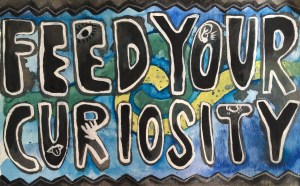 FEED YOUR
CURIOSITY